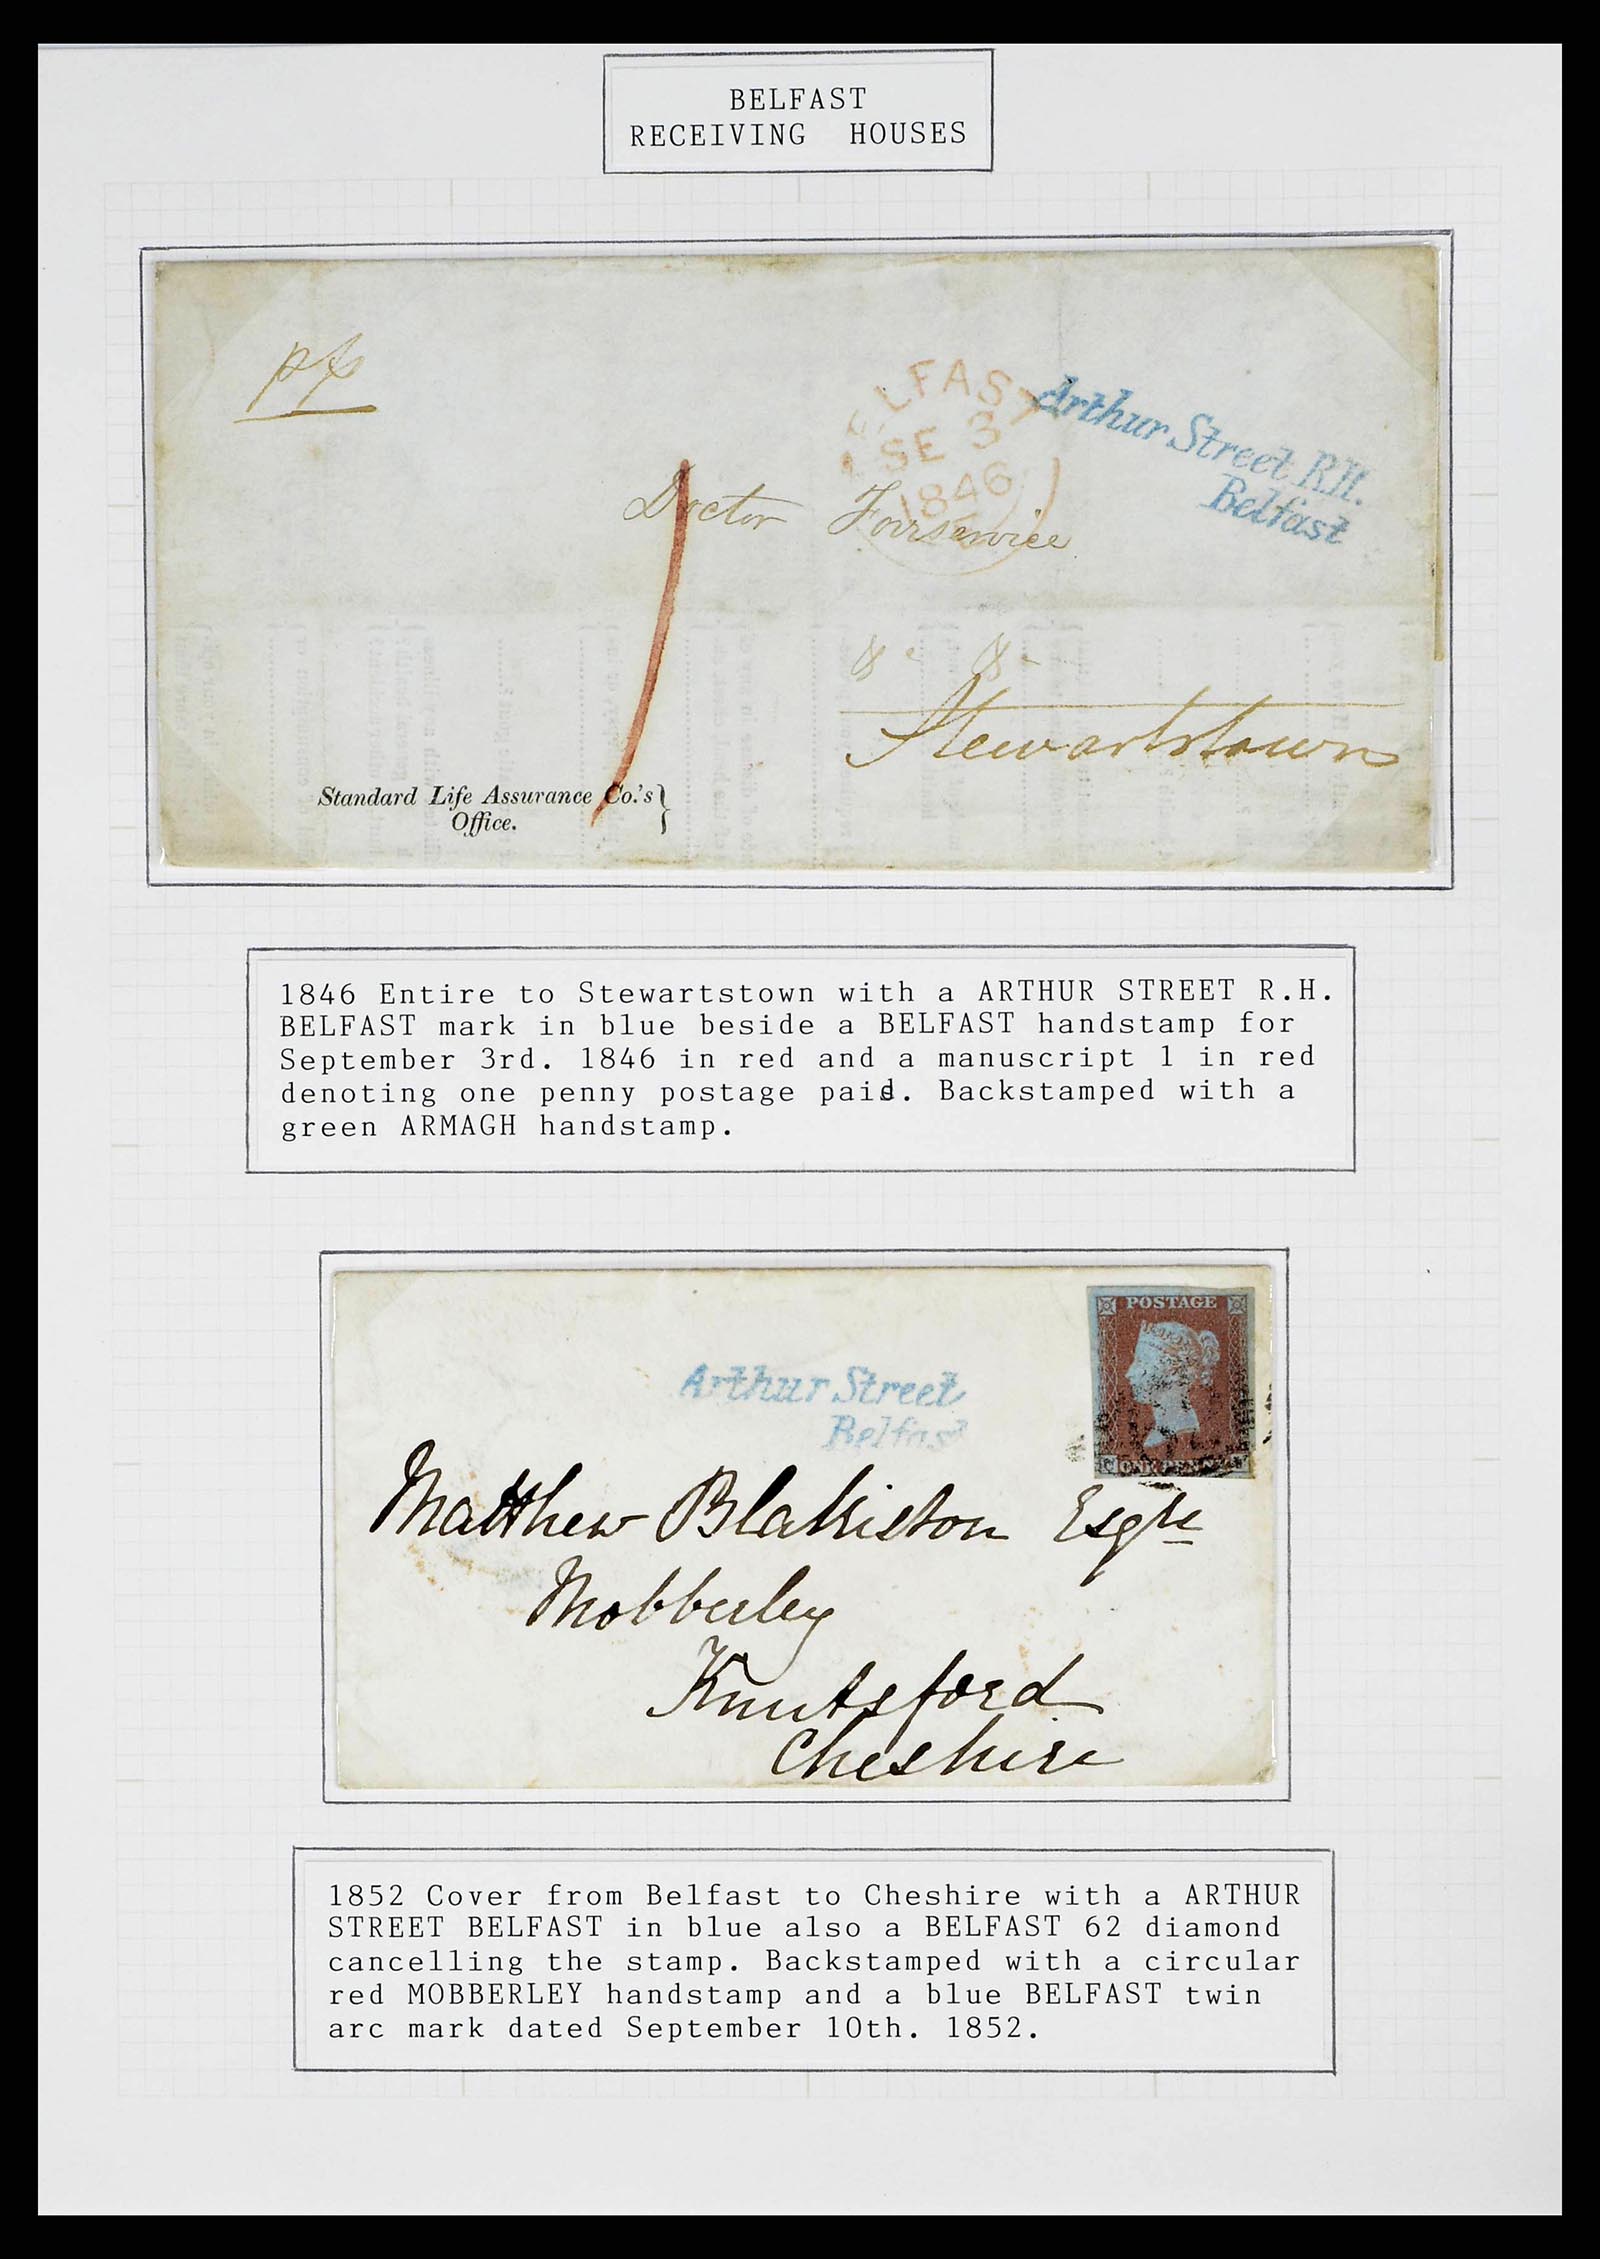 BELFAST
RECEIVING HOUSES
BELFAST
SE 3
1846
Arthur Street R.H.
Belfast
Doctor Fairservice
&c &c
Stewartstown
Standard Life Assurance Co.'s }
Office.
1846 Entire to Stewartstown with a ARTHUR STREET R.H.
BELFAST mark in blue beside a BELFAST handstamp for
September 3rd. 1846 in red and a manuscript 1 in red
denoting one penny postage paid. Backstamped with a
green ARMAGH handstamp.
POSTAGE
ONE PENNY
Arthur Street
Belfast
Matthew Blakiston Esqre
Mobberley
Knutsford
Cheshire
1852 Cover from Belfast to Cheshire with a ARTHUR
STREET BELFAST in blue also a BELFAST 62 diamond
cancelling the stamp. Backstamped with a circular
red MOBBERLEY handstamp and a blue BELFAST twin
arc mark dated September 10th. 1852.